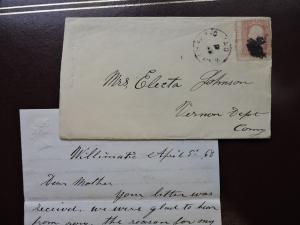 Mrs. Electa Johnson
Vernon Depot
Conn
Willimatic April 5th, 68
Dear Mother
Your letter was
received. we were glad to hear
from you. the reason for my